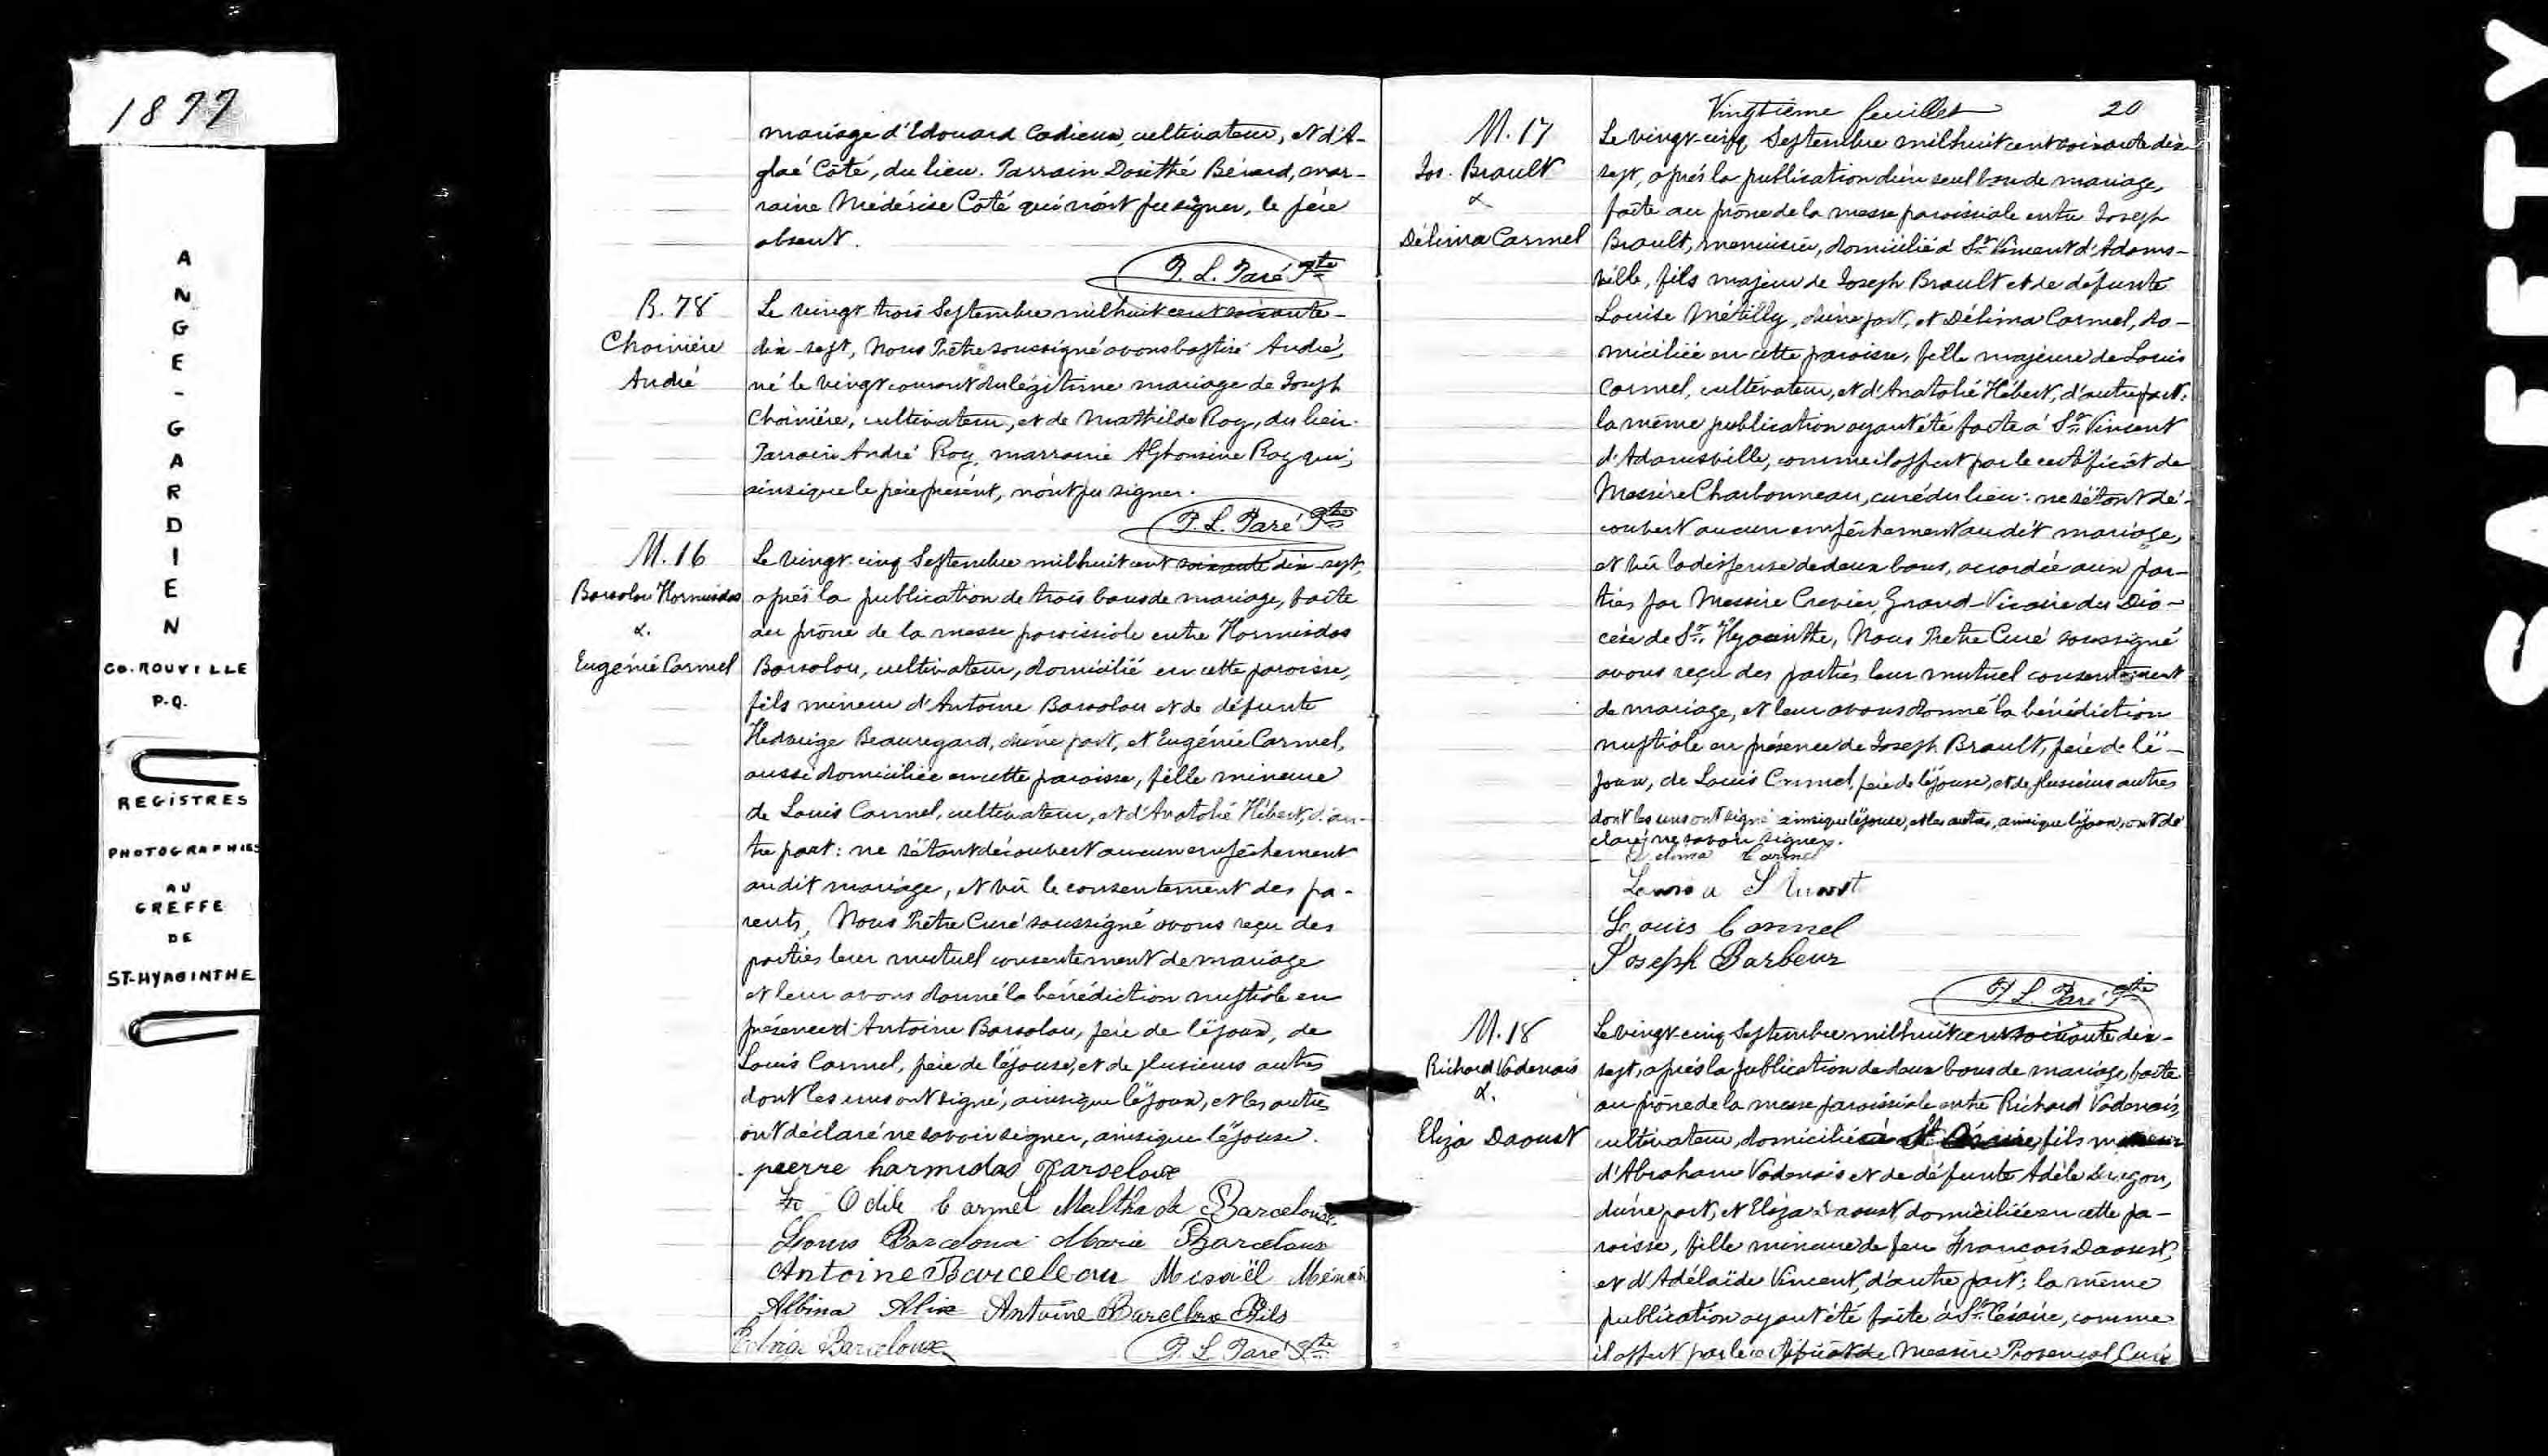 1877
ANGE-GARDIEN
CO. ROUVILLE
P.Q.
REGISTRES
PHOTOGRAPHIES
AU
GREFFE
DE
ST-HYACINTHE
mariage d'Edouard Cadieux, cultivateur, et d'A-
glaé Côté, du lieu. Parrain Dosithé Bérard, mar-
raine Médérise Côté qui n'ont pu signer, le père
absent.
P. L. Paré Ptre
B. 78
Choinière
André
Le vingt trois Septembre mil huit cent soixante-
dix-sept, Nous Prêtre soussigné avons baptisé André,
né le vingt courant du légitime mariage de Joseph
Choinière, cultivateur, et de Mathilde Roy, du lieu.
Parrain André Roy, marraine Alphonsine Roy qui,
ainsi que le père présent, n'ont pu signer.
P. L. Paré Ptre
M. 16
Barsalou Hormisdas
&.
Eugénie Carmel
Le vingt-cinq Septembre mil huit cent soixante dix-sept,
après la publication de trois bans de mariage, faite
au prône de la messe paroissiale entre Hormisdas
Barsalou, cultivateur, domicilié en cette paroisse,
fils mineur d'Antoine Barsalou et de défunte
Hedwige Beauregard, d'une part, et Eugénie Carmel,
aussi domiciliée en cette paroisse, fille mineure
de Louis Carmel, cultivateur, et d'Anatolie Hébert, d'au-
tre part: ne s'étant découvert aucun empêchement
au dit mariage, et vû le consentement des pa-
rents, Nous Prêtre Curé soussigné avons reçu des
parties leur mutuel consentement de mariage
et leur avons donné la bénédiction nuptiale en
présence d'Antoine Barsalou, père de l'époux, de
Louis Carmel, père de l'épouse, et de plusieurs autres
dont les uns ont signé, ainsi que l'époux, et les autres
ont déclaré ne savoir signer, ainsi que l'épouse.
pierre harmidas Barseloux
Odile Carmel Malthilde Barceloux
Louis Barceloux Marie Barceloux
Antoine Barceleau Misaël Ménard
Albina Alix Antoine Barceloux Fils
Barceloux
P. L. Paré Ptre
Vingtième feuillet 20
M. 17
Jos. Brault
&
Délima Carmel
Le vingt-cinq Septembre mil huit cent soixante dix-
sept, après la publication d'un seul ban de mariage,
faite au prône de la messe paroissiale entre Joseph
Brault, menuisier, domicilié à St. Vincent d'Adams-
ville, fils majeur de Joseph Brault et de défunte
Louise Métilly, d'une part, et Délima Carmel, do-
miciliée en cette paroisse, fille majeure de Louis
Carmel, cultivateur, et d'Anatolie Hébert, d'autre part:
la même publication ayant été faite à St. Vincent
d'Adamsville, comme il appert par le certificat de
Messire Charbonneau, curé du lieu: ne s'étant dé-
couvert aucun empêchement au dit mariage,
et vû la dispense de deux bans, accordée aux par-
ties par Messire Crevier, Grand-Vicaire du Dio-
cèse de St. Hyacinthe, Nous Prêtre Curé soussigné
avons reçu des parties leur mutuel consentement
de mariage, et leur avons donné la bénédiction
nuptiale en présence de Joseph Brault, père de l'é-
poux, de Louis Carmel, père de l'épouse, et de plusieurs autres
dont les uns ont signé ainsi que l'épouse, et les autres, ainsi que l'époux, ont dé-
claré ne savoir signer.
Delima Carmel
Louis Carmel
Joseph Barbeur
P. L. Paré Ptre
M. 18
Richard Vadenais
&.
Eliza Daoust
Le vingt-cinq Septembre mil huit cent soixante dix-
sept, après la publication de deux bans de mariage, faite
au prône de la messe paroissiale entre Richard Vadenais,
cultivateur, domicilié à St Césaire, fils mineur
d'Abraham Vadenais et de défunte Adèle
d'une part, et Eliza Daoust, domiciliée en cette pa-
roisse, fille mineure de feu François Daoust,
et d'Adélaïde Vincent, d'autre part: la même
publication ayant été faite à St. Césaire, comme
il appert par le certificat de Messire Provençal Curé
SAFETY